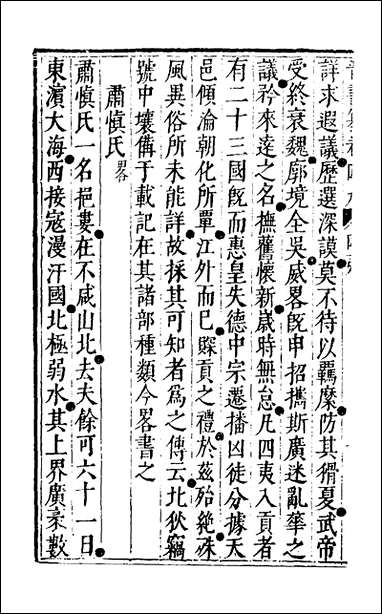 詳求遐議歷選深謨莫不待以羈縻防其猾夏武帝
受終衰魏廓境全吳威畧旣申招攜斯廣迷亂華之
議矜來遠之名撫舊懷新歲時無怠凡四夷入貢者
有二十三國旣而惠皇失德中宗遷播凶徒分據天
邑傾淪朝化所覃江外而已賝貢之禮於茲殆絶殊
風異俗所未能詳故採其可知者爲之傳云北狄竊
號中壤備于載記在其諸部種類今畧書之
肅愼氏畧
肅愼氏一名挹婁在不咸山北去夫餘可六十一日
東濱大海西接寇漫汗國北極弱水其土界廣袤數